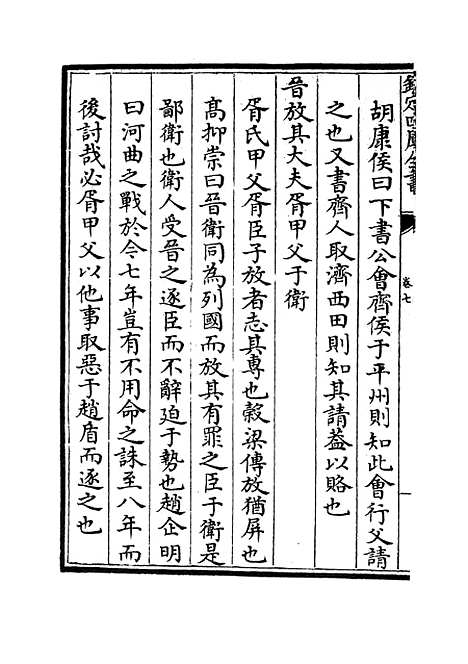 欽定四庫全書
卷七
胡康侯曰下書公會齊侯于平州則知此會行父請
之也又書齊人取濟西田則知其請葢以賂也
晉放其大夫胥甲父于衛
胥氏甲父胥臣子放者志其專也穀梁傳放猶屏也
髙抑崇曰晉衛同為列國而放其有罪之臣于衛是
鄙衛也衛人受晉之逐臣而不辭廹于勢也趙企明
曰河曲之戰於今七年豈有不用命之誅至八年而
後討哉必胥甲父以他事取惡于趙盾而逐之也